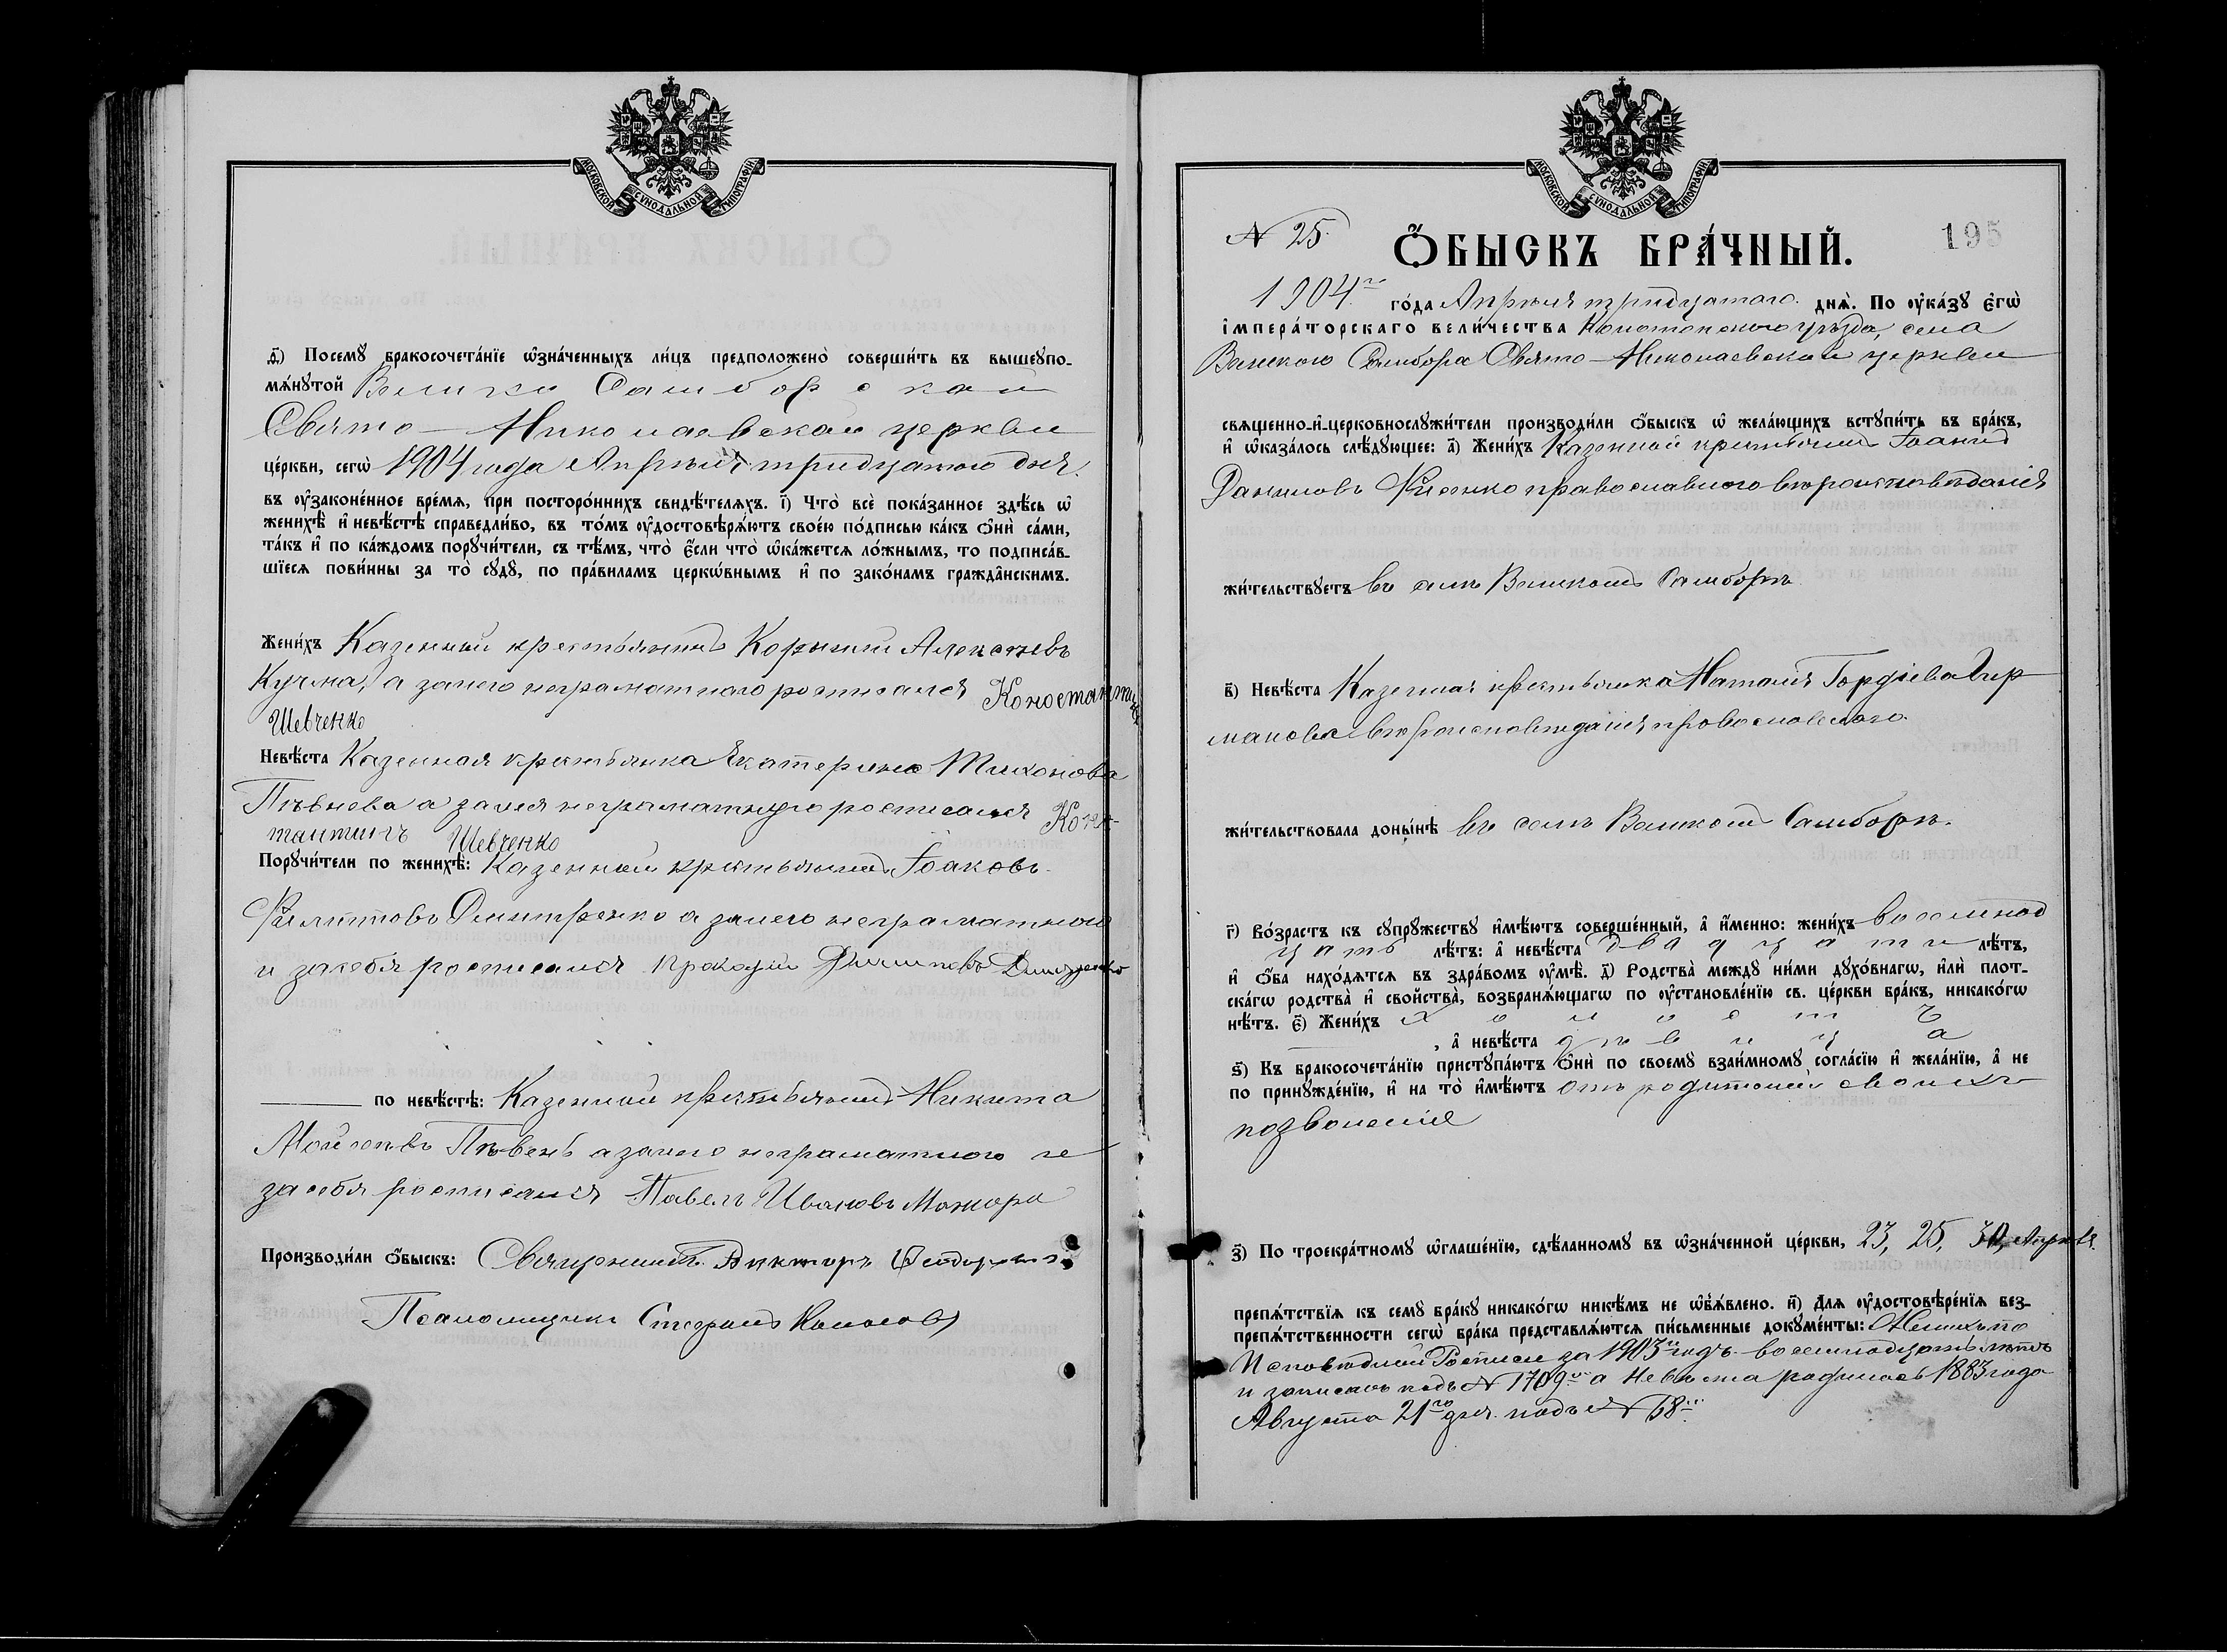 МОСКОВСКОЙ СѴНОДАЛЬНОЙ ТИПОГРАФІИ
д҃) Посемꙋ бракосочета́нїе ѡ҆зна́ченныхъ ли́цъ предположено̀ соверши́ть въ вышеꙋпо-
мѧ́нꙋтой Велико Самборской
Свято-Николаевской церкви
це́ркви, сегѡ̀ 1904 года Апрѣля тридцатого дня.
въ ᲂу҆законе́нное вре́мѧ, при посторо́ннихъ свидѣ́телѧхъ. і҃) Что̀ всѐ пока́занное здѣ́сь ѡ҆
женихѣ̀ и҆ невѣ́стѣ справедли́во, въ то́мъ ᲂу҆достовѣрѧ́ютъ свое́ю по́дписью ка́къ ѻ҆нѝ са́ми,
та́къ и҆ по ка́ждомъ порꙋчи́тели, съ тѣ́мъ, что̀ є҆́сли что̀ ѡ҆ка́жетсѧ ло́жнымъ, то подписа́в-
шїесѧ пови́нны за то̀ сꙋдꙋ̀, по пра́виламъ церкѡ́внымъ и҆ по зако́намъ гражда́нскимъ.
Жени́хъ Казенный крестьянинъ Корнилій Алексѣевъ
Кучма, а за него неграматнаго росписался Константинъ
Шевченко
Невѣ́ста Казенная крестьянка Екатерина Тихонова
Пѣвнева а за нея неграматную росписался Конс-
тантинъ Шевченко
Порꙋчи́тели по женихѣ̀: Казенный крестьянинъ Іоаковъ
Филиповъ Дмитренко а за него неграматного
и за себя росписался Филиповъ Дмитренко
по невѣ́стѣ: Казенный крестьянинъ Никита
Мойсеевъ Пѣвень а за него неграматного и
за себя росписался Павелъ Ивановъ Мажара
Производи́ли ѻ҆́быскъ: Священникъ Викторъ
Псаломщикъ Стефанъ
МОСКОВСКОЙ СѴНОДАЛЬНОЙ ТИПОГРАФІИ
N 25
195
Ѻ҆́БЫСКЪ БРА́ЧНЫЙ.
1904го го́да Апрѣля тридцатого днѧ̀. По ᲂу҆ка́зꙋ є҆гѡ̀
і҆мпера́торскаго вели́чества Конотопского уѣзда, села
Великого Самбора Свято-Николаевской церкви
свѧщенно-и҆-церковнослꙋжи́тели производи́ли ѻ҆́быскъ ѡ҆ жела́ющихъ встꙋпи́ть въ бра́къ,
и҆ ѡ҆каза́лось слѣ́дꙋющее: а҃) Жени́хъ Казенный крестьянинъ Іоаннъ
Даниловъ православного вѣроисповѣданія
жи́тельствꙋетъ въ селѣ Великомъ Самборѣ
в҃) Невѣ́ста Казенная крестьянка Наталія Гордіева Гир
манова вѣроисповѣданія провославного
жи́тельствовала доны́нѣ въ селѣ Великомъ Самборѣ.
г҃) Во́зрастъ къ сꙋпрꙋ́жествꙋ и҆мѣ́ютъ соверше́нный, а҆ и҆́менно: жени́хъ восемнад
цать лѣ́тъ: а҆ невѣ́ста двадцати лѣ́тъ,
и҆ ѻ҆́ба нахо́дѧтсѧ въ здра́вомъ ᲂу҆мѣ̀. д҃) Родства̀ междꙋ̀ ни́ми дꙋхо́внагѡ, и҆лѝ плот-
ска́гѡ родства̀ и҆ свойства̀, возбранѧ́ющагѡ по ᲂу҆становле́нїю св. це́ркви бра́къ, никако́гѡ
нѣ́тъ. є҃) Жени́хъ холостъ
, а҆ невѣ́ста дѣвица
ѕ҃) Къ бракосочета́нїю пристꙋпа́ютъ ѻ҆нѝ по своемꙋ̀ взаи́мномꙋ согла́сїю и҆ жела́нїю, а҆ не
по принꙋжде́нїю, и҆ на то̀ и҆мѣ́ютъ отъ родителей своихъ
позволеніе
з҃) По троекра́тномꙋ ѡ҆глаше́нїю, сдѣ́ланномꙋ въ ѡ҆зна́ченной це́ркви, 23, 25, 30, Апрѣля.
препѧ́тствїѧ къ семꙋ̀ бра́кꙋ никако́гѡ никѣ́мъ не ѡ҆б̾ѧ́влено. и҃) Длѧ ᲂу҆достовѣре́нїѧ без-
препѧ́тственности сегѡ̀ бра́ка представлѧ́ютсѧ пи́сьменные докꙋме́нты: Женихъ по
Исповѣдной Росписи за 1903й годъ восемнадцать лѣтъ
и записанъ подъ N 170 а Невѣста родилась 1883 года
Августа 21го дня. подъ N 58